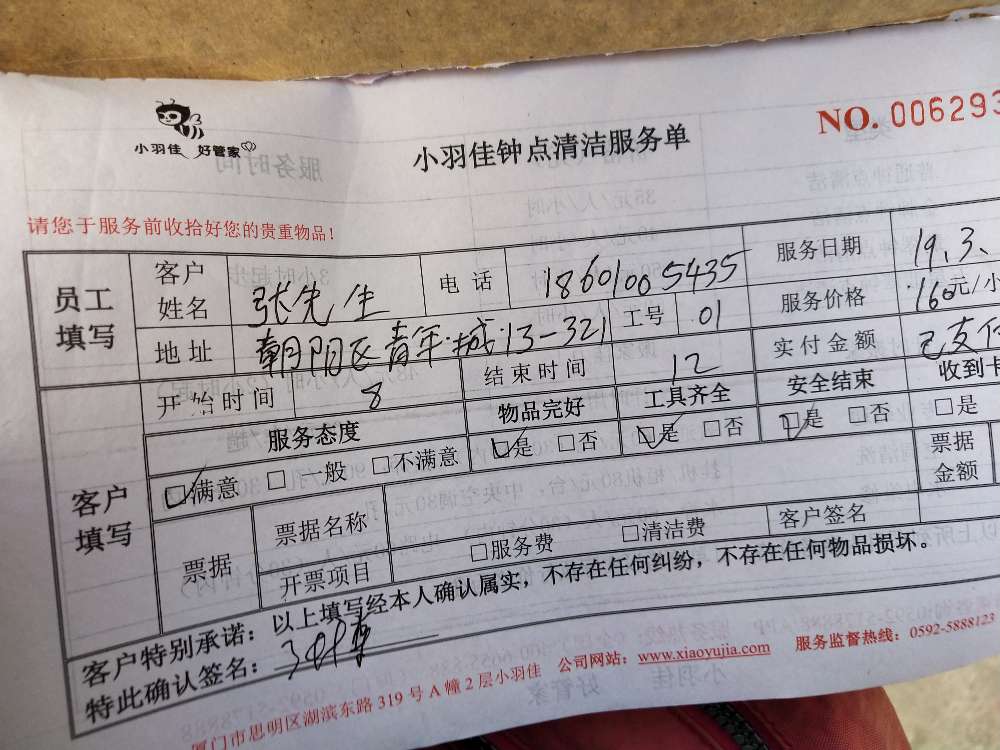 小羽佳 好管家
小羽佳钟点清洁服务单
NO. 006293
请您于服务前收拾好您的贵重物品!
员工填写 客户姓名 张先生 电话 18601005435 服务日期 19.3.
地址 朝阳区青年城13-321 工号 01 服务价格 160元/小
开始时间 8 结束时间 12 实付金额 已支付
客户填写 服务态度 物品完好 工具齐全 安全结束 收到卡
☑满意 □一般 □不满意 ☑是 □否 ☑是 □否 ☑是 □否 □是
票据 票据名称 客户签名 票据金额
开票项目 □服务费 □清洁费
客户特别承诺:以上填写经本人确认属实,不存在任何纠纷,不存在任何物品损坏。
特此确认签名:
厦门市思明区湖滨东路319号A幢2层小羽佳 公司网站:www.xiaoyujia.com 服务监督热线:0592-5888123